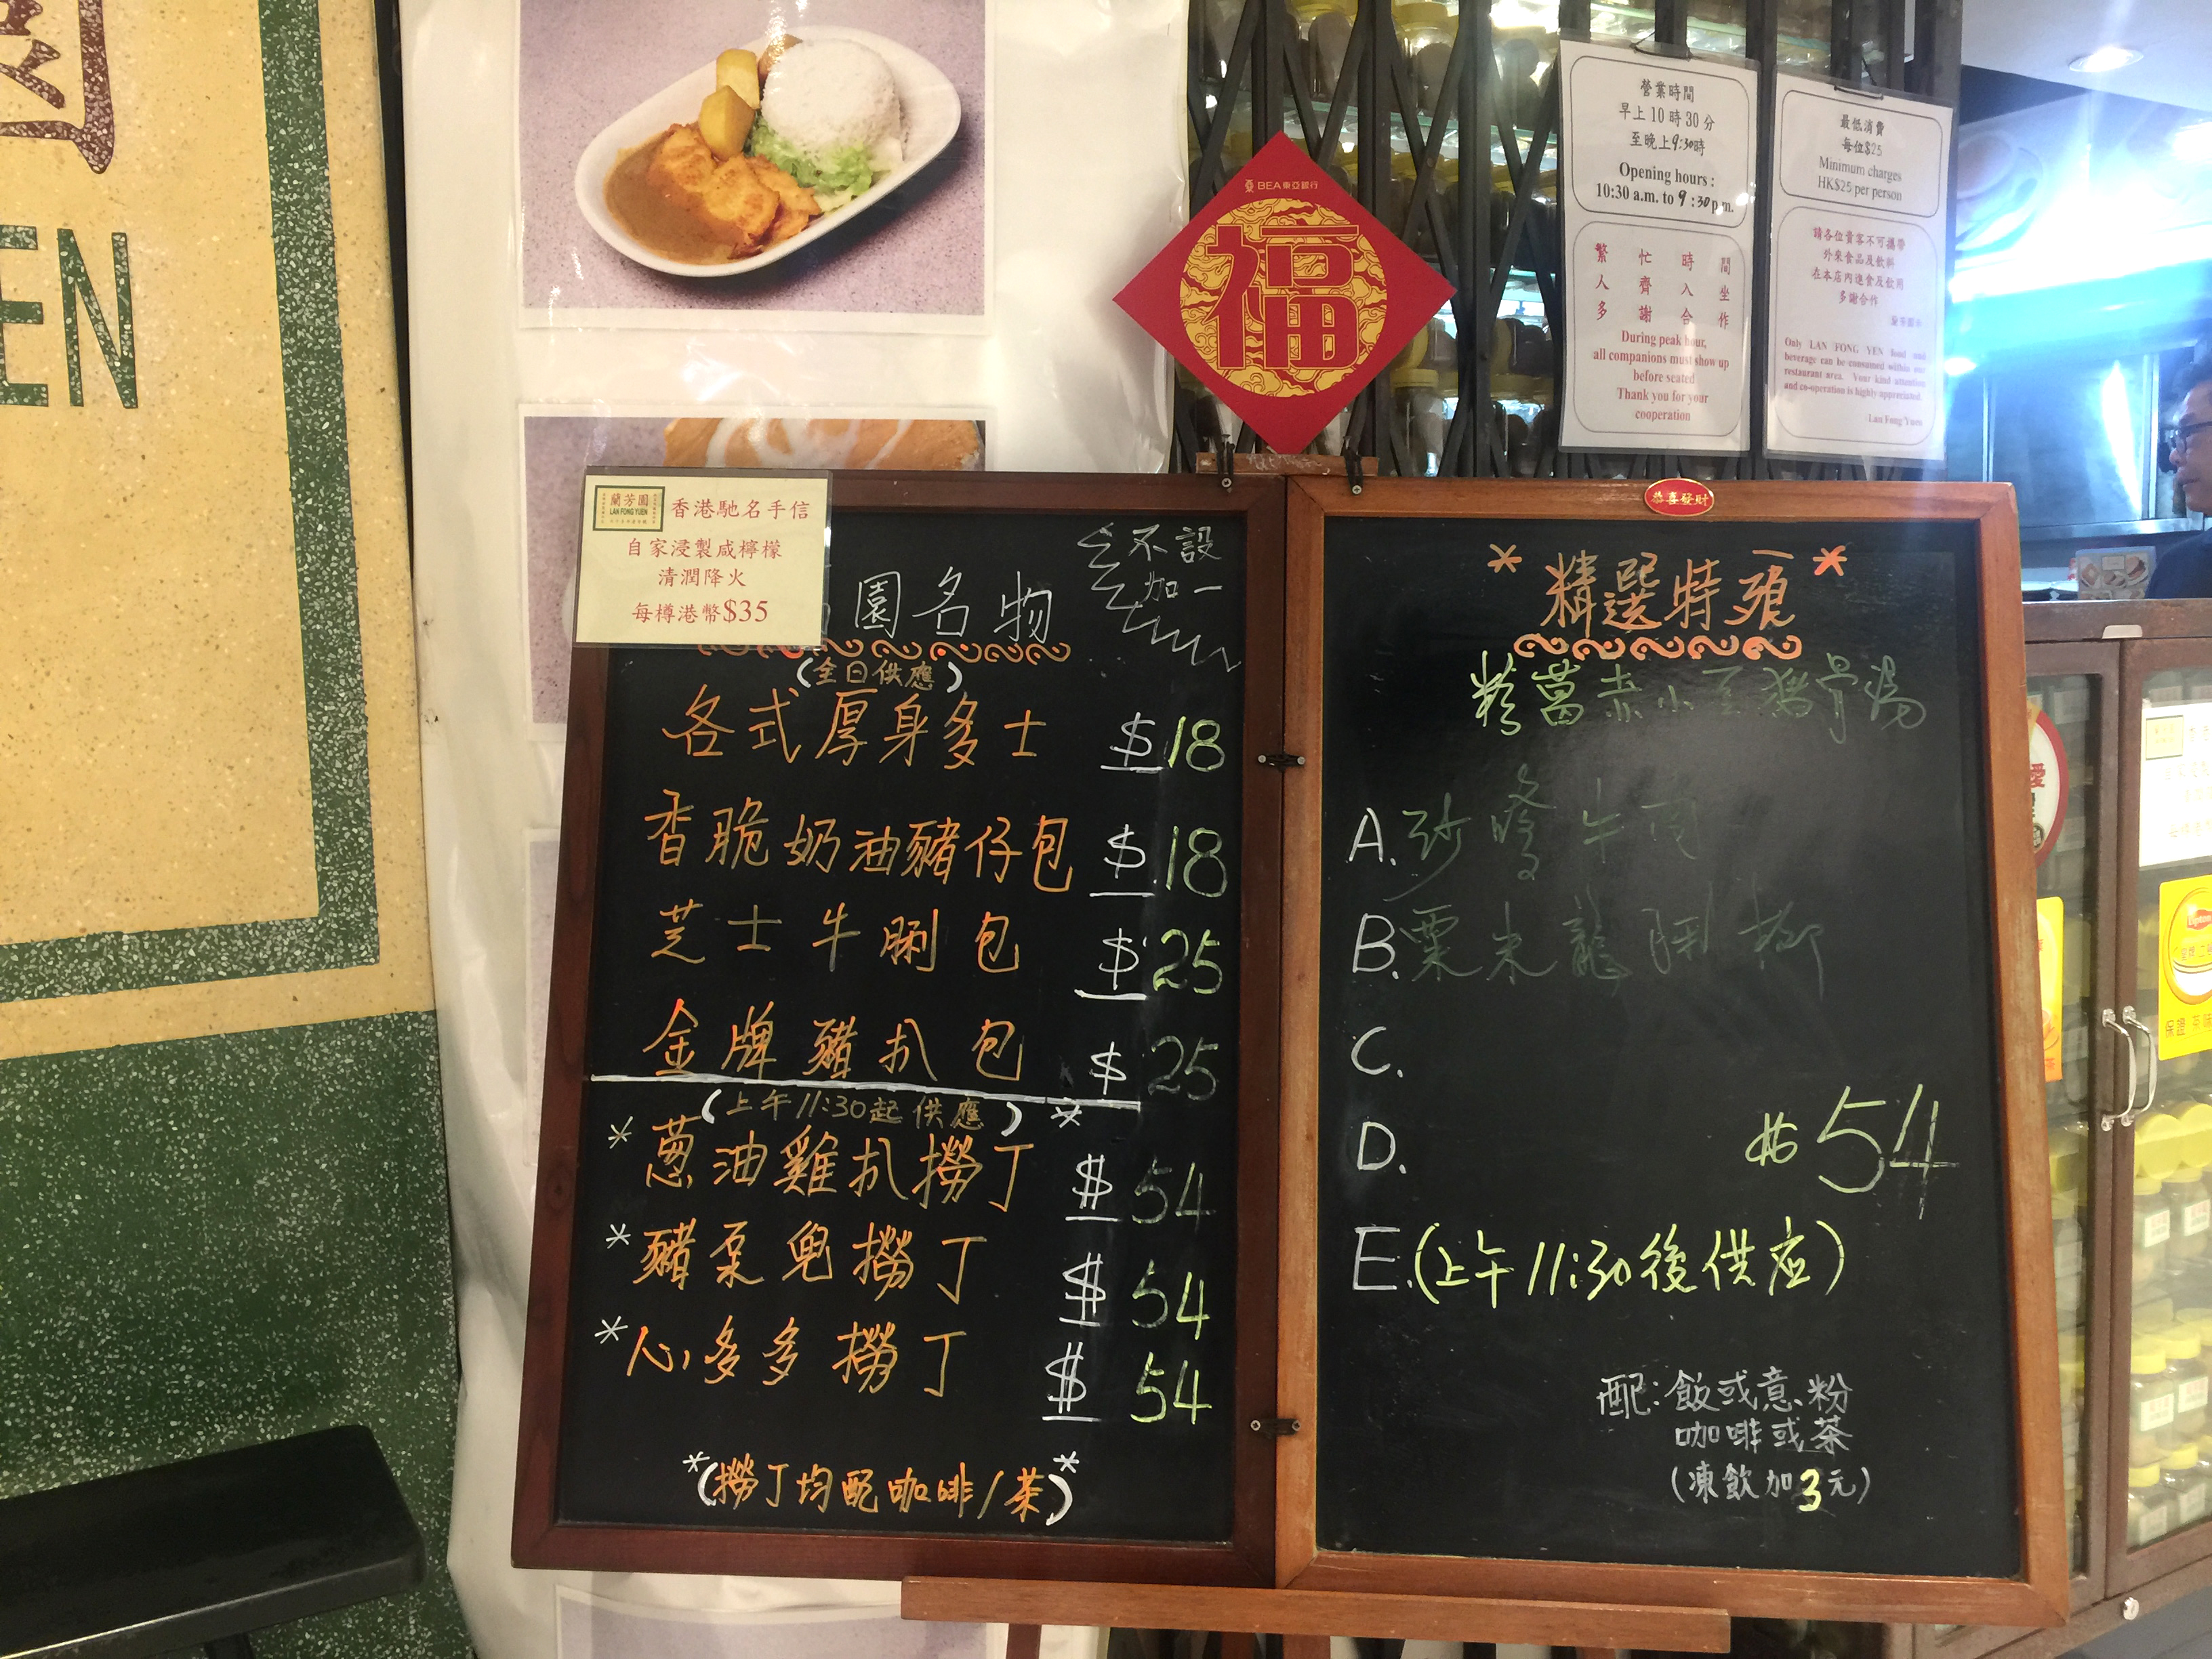 EN
BEA東亞銀行
福
營業時間
早上10時30分
至晚上9:30時
Opening hours :
10:30 a.m. to 9:30 p.m.
繁忙時間
人齊入坐
多謝合作
During peak hour,
all companions must show up
before seated
Thank you for your
cooperation
最低消費
每位$25
Minimum charges
HK$25 per person
請各位貴客不可攜帶
外來食品及飲料
在本店內進食及飲用
多謝合作
Only LAN FONG YUEN food and
beverage can be consumed within our
restaurant area. Your kind attention
and co-operation is highly appreciated.
Lan Fong Yuen
蘭芳園
LAN FONG YUEN
香港馳名手信
自家浸製咸檸檬
清潤降火
每樽港幣$35
園名物
不設
加一
(全日供應)
各式厚身多士 $18
香脆奶油豬仔包 $18
芝士牛脷包 $25
金牌豬扒包 $25
(上午11:30起供應)*
*蔥油雞扒撈丁 $54
*豬䐁兜撈丁 $54
*心多多撈丁 $54
*(撈丁均配咖啡/茶)*
恭喜發財
*精選特飧*
粉葛赤小豆豬骨湯
A.沙嗲牛肉
B.粟米龍脷柳
C.
D.
$54
E.(上午11:30後供应)
配:飯或意粉
咖啡或茶
(凍飲加3元)
Lipton